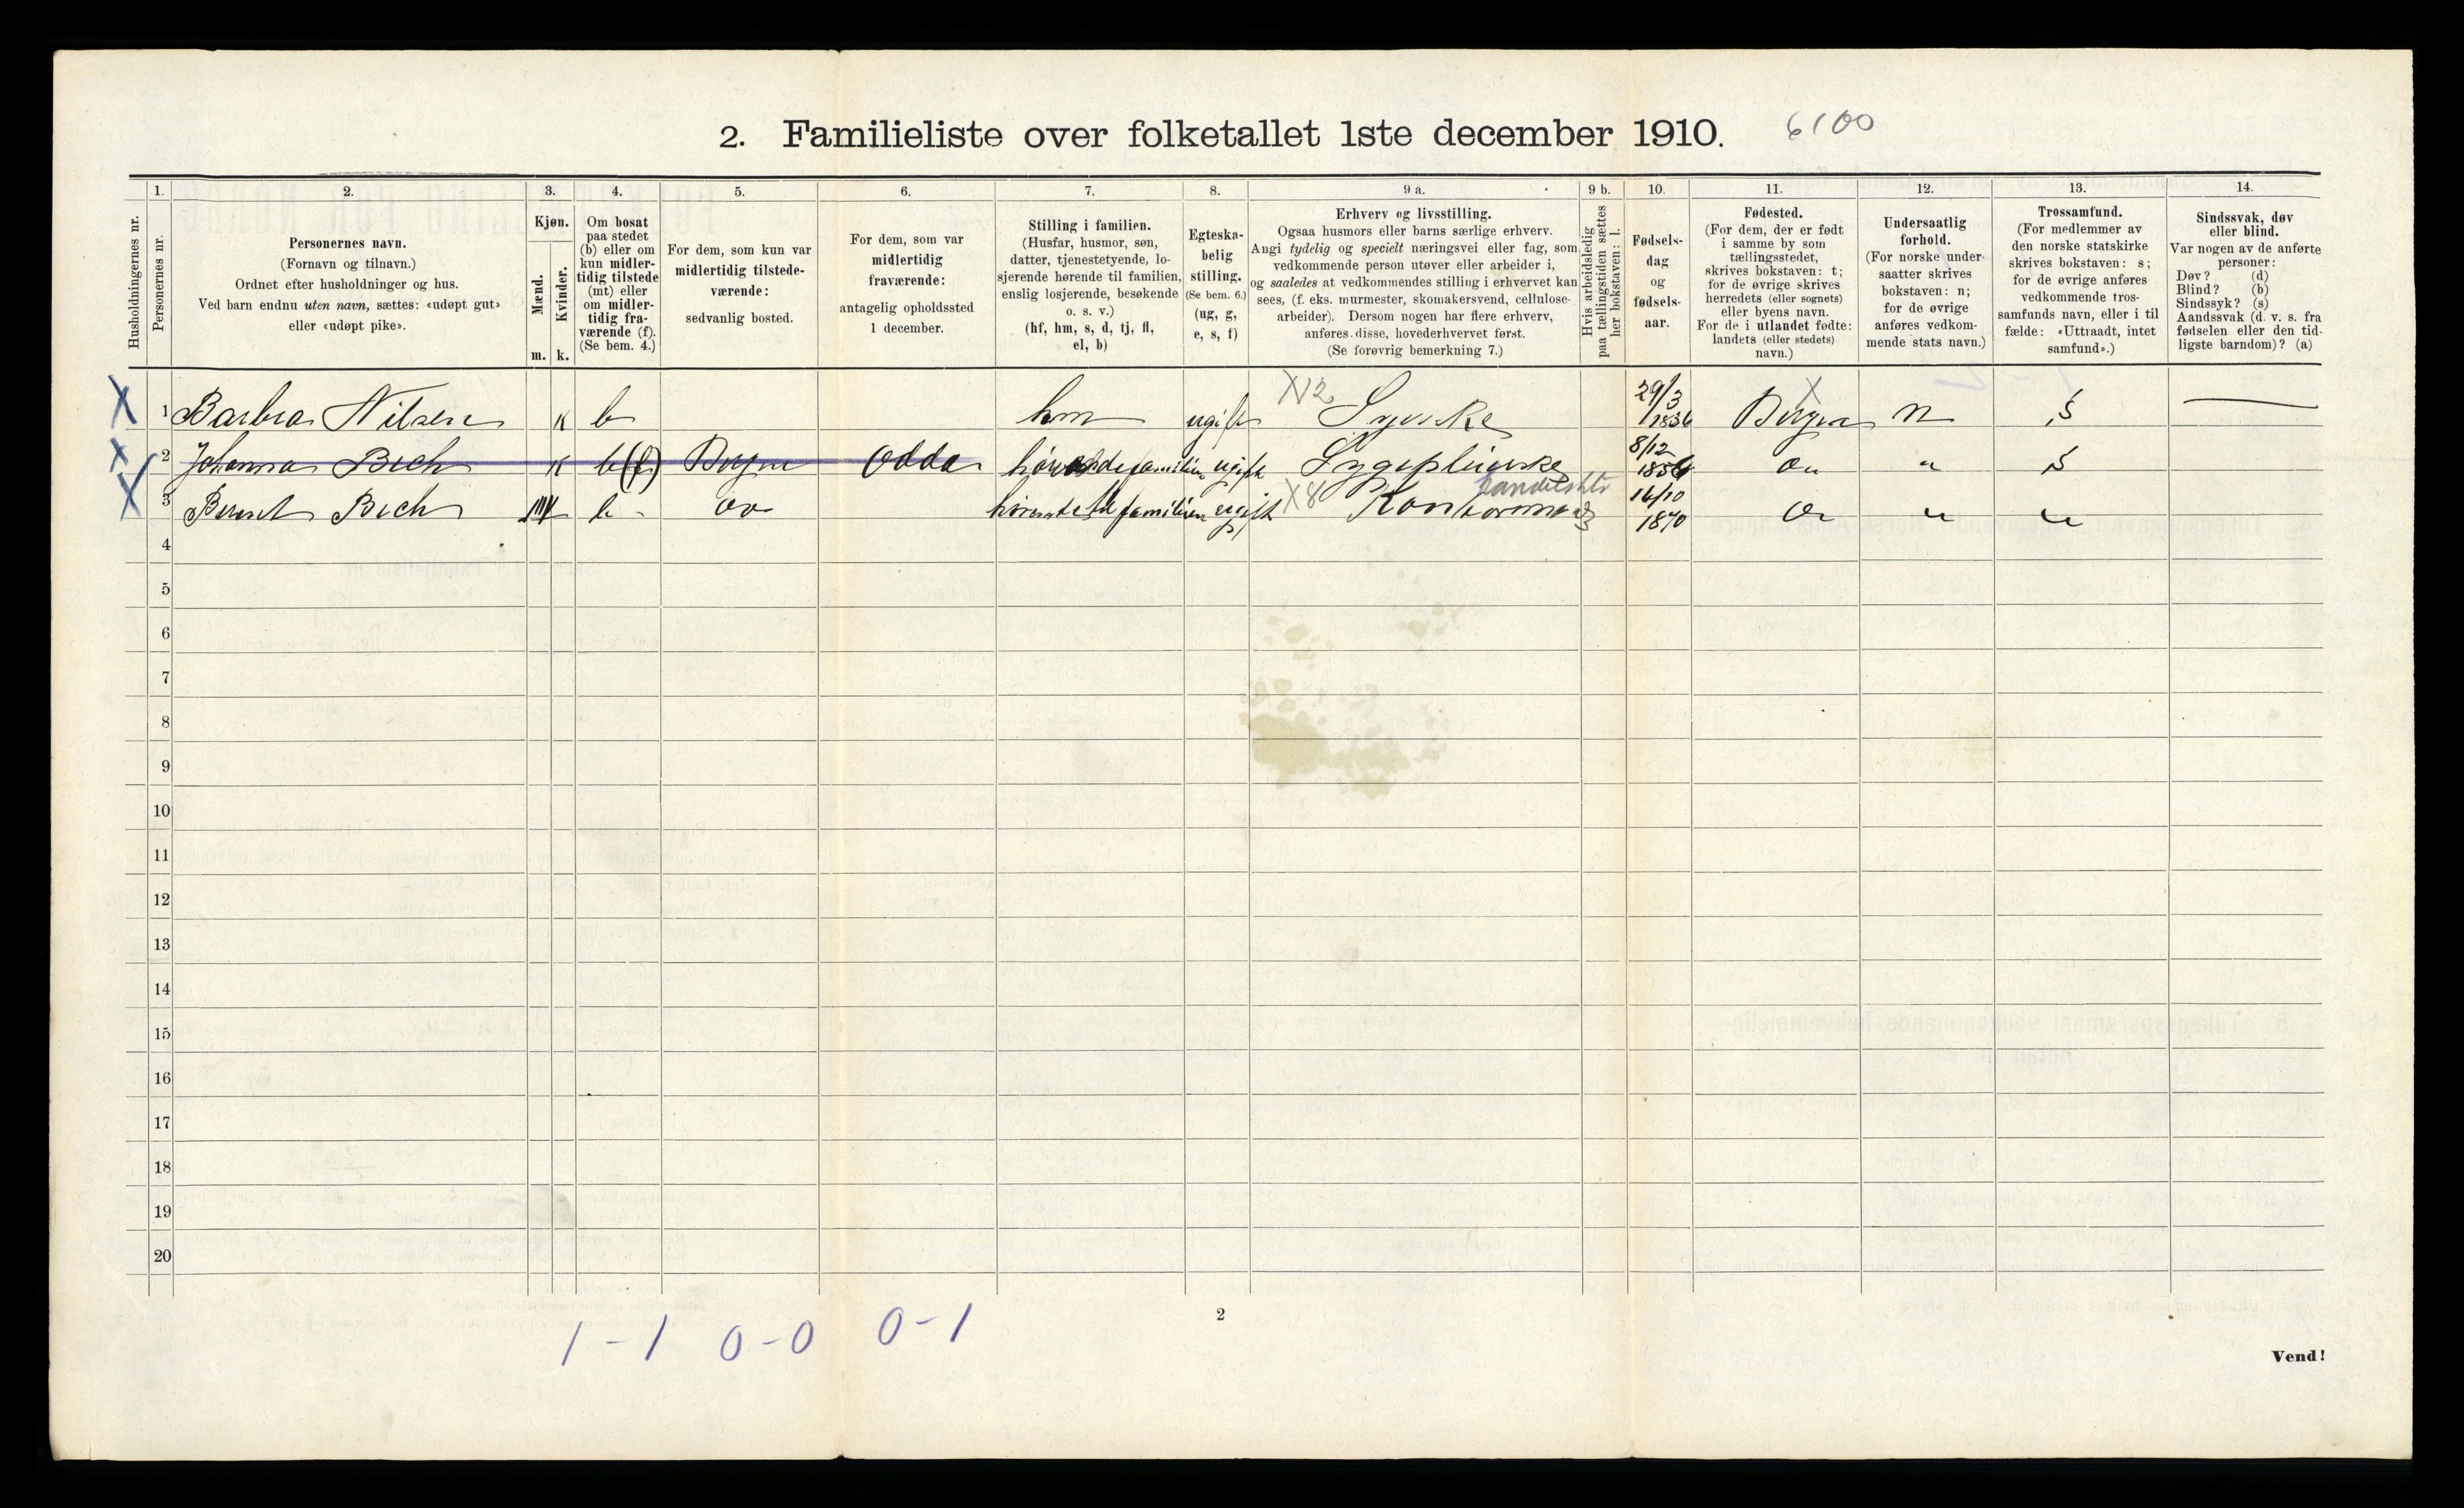 2. Familieliste over folketallet 1ste december 1910. 6100
1. 2. 3. 4. 5. 6. 7. 8. 9 a. 9 b. 10. 11. 12. 13. 14.
Husholdningernes nr.
Personernes nr.
Personernes navn.
(Fornavn og tilnavn.)
Ordnet efter husholdninger og hus.
Ved barn endnu uten navn, sættes: «udøpt gut»
eller «udøpt pike».
Kjøn.
Mænd.
Kvinder.
m. k.
Om bosat
paa stedet
(b) eller om
kun midler-
tidig tilstede
(mt) eller
om midler-
tidig fra-
værende (f).
(Se bem. 4.)
For dem, som kun var
midlertidig tilstede-
værende:
sedvanlig bosted.
For dem, som var
midlertidig
fraværende:
antagelig opholdssted
1 december.
Stilling i familien.
(Husfar, husmor, søn,
datter, tjenestetyende, lo-
sjerende hørende til familien,
enslig losjerende, besøkende
o. s. v.)
(hf, hm, s, d, tj, fl,
el, b)
Egteska-
belig
stilling.
(Se bem. 6.)
(ug, g,
e, s, f)
Erhverv og livsstilling.
Ogsaa husmors eller barns særlige erhverv.
Angi tydelig og specielt næringsvei eller fag, som
vedkommende person utøver eller arbeider i,
og saaledes at vedkommendes stilling i erhvervet kan
sees, (f. eks. murmester, skomakersvend, cellulose-
arbeider). Dersom nogen har flere erhverv,
anføres disse, hovederhvervet først.
(Se forøvrig bemerkning 7.)
Hvis arbeidsledig
paa tællingstiden sættes
her bokstaven: l.
Fødsels-
dag
og
fødsels-
aar.
Fødested.
(For dem, der er født
i samme by som
tællingsstedet,
skrives bokstaven: t;
for de øvrige skrives
herredets (eller sognets)
eller byens navn.
For de i utlandet fødte:
landets (eller stedets)
navn.)
Undersaatlig
forhold.
(For norske under-
saatter skrives
bokstaven: n;
for de øvrige
anføres vedkom-
mende stats navn.)
Trossamfund.
(For medlemmer av
den norske statskirke
skrives bokstaven: s;
for de øvrige anføres
vedkommende tros-
samfunds navn, eller i til
fælde: «Uttraadt, intet
samfund».)
Sindssvak, døv
eller blind.
Var nogen av de anførte
personer:
Døv? (d)
Blind? (b)
Sindssyk? (s)
Aandssvak (d. v. s. fra
fødselen eller den tid-
ligste barndom)? (a)
X 1 Barbra Nilsen K b hm ugift X12 Syerske 29/3 1836 X Bergen n s
X 2 Johanna Bech K b(f) Bergen Odda ugift Sygepleierske 8/12 do " s
X 3 Bernt Bech b - do familien ugift X8 Kontormand 14/10 1870 do " "
4
5
6
7
8
9
10
11
12
13
14
15
16
17
18
19
20
2
1-1 0-0 0-1
Vend!